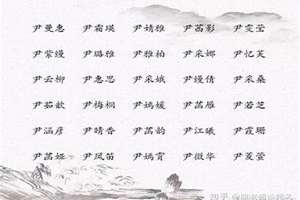 尹曼惠 尹霜瑛 尹婧雅 尹菡影 尹雯莹
尹紫缦 尹璐雅 尹雅柏 尹采娜 尹忆芙
尹云柳 尹惠思 尹采娥 尹缦倩 尹采桑
尹茹歆 尹梅桐 尹嫣媛 尹菡雁 尹若芝
尹涵彦 尹晴香 尹菡韵 尹江曦 尹霞珊
尹菡娅 尹凤苗 尹嫣霄 尹微华 尹菱萱
知乎